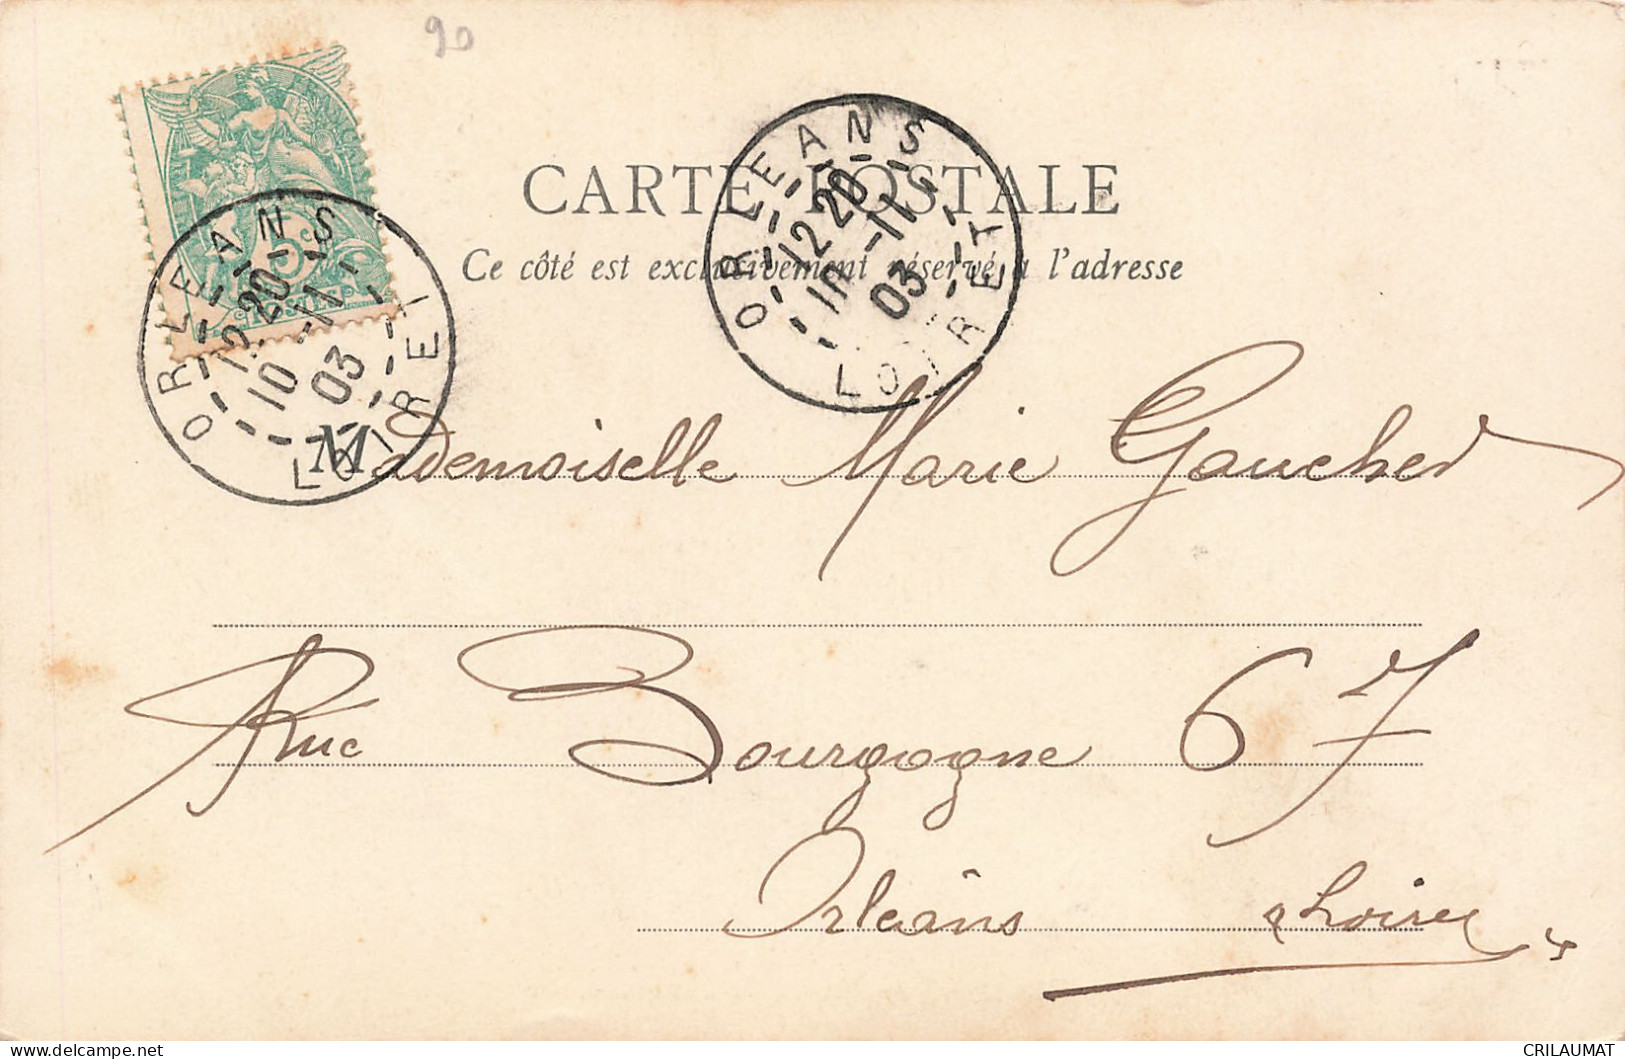 90
CARTE POSTALE
Ce côté est exclusivement réservé à l'adresse
5c
ORLEANS
12 20
10 -11
03
LOIRET
ORLEANS
12 20
10 -11
03
LOIRET
Mademoiselle Marie Gaucher
Rue Bourgogne 67
Orléans Loiret
CRILAUMAT